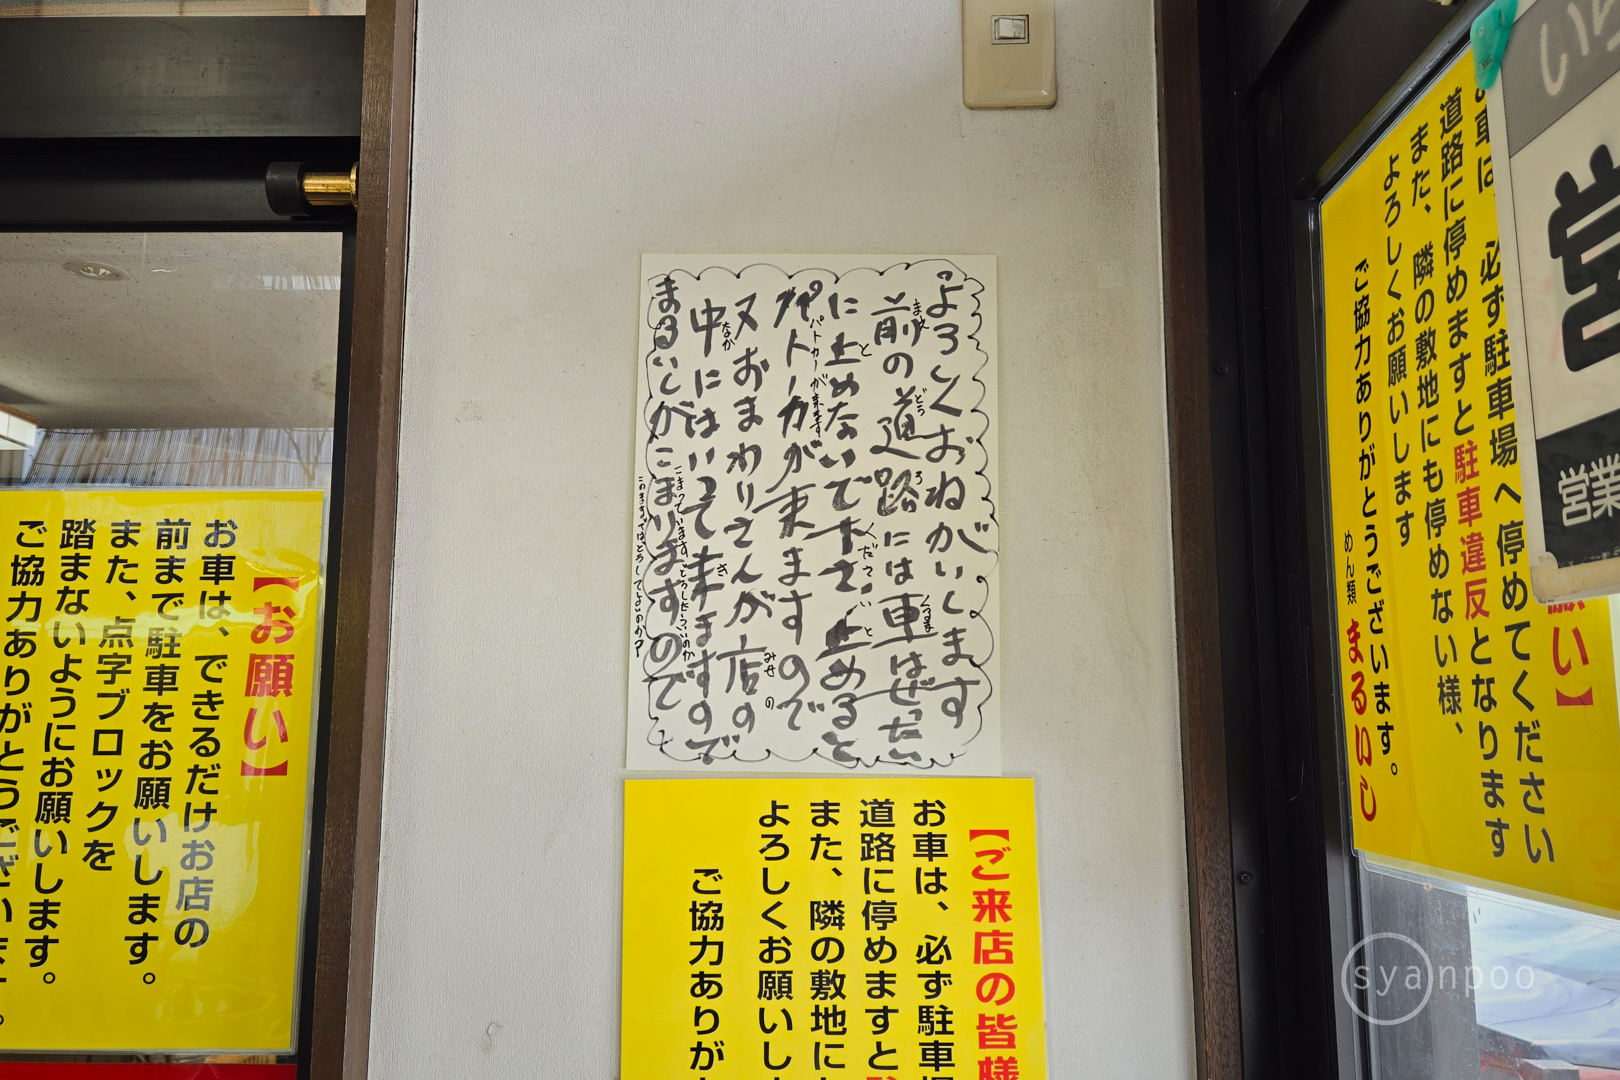 よろしくおねがいします
前の道路には車はぜったい
に止めないで下さい止めると
パトカーが来ますので
又おまわりさんが店の
中にはいって来ますので
まるいしがこまりますので
まえ
どう
ろ
くるま
と
と
パトカーが来ます
みせ
の
なか
き
こまっています。どうしたらいいのか
このままではどうしてよいのか?
【お願い】
お車は、できるだけお店の
前まで駐車をお願いします。
また、点字ブロックを
踏まないようにお願いします。
ご協力ありがとうございます。
【ご来店の皆様
お車は、必ず駐車場
道路に停めますと
また、隣の敷地に
よろしくお願いし
ご協力ありが
願い】
お車は、必ず駐車場へ停めてください
道路に停めますと駐車違反となります
また、隣の敷地にも停めない様、
よろしくお願いします
ご協力ありがとうございます。
めん類 まるいし
いら
営
営業
syanpoo